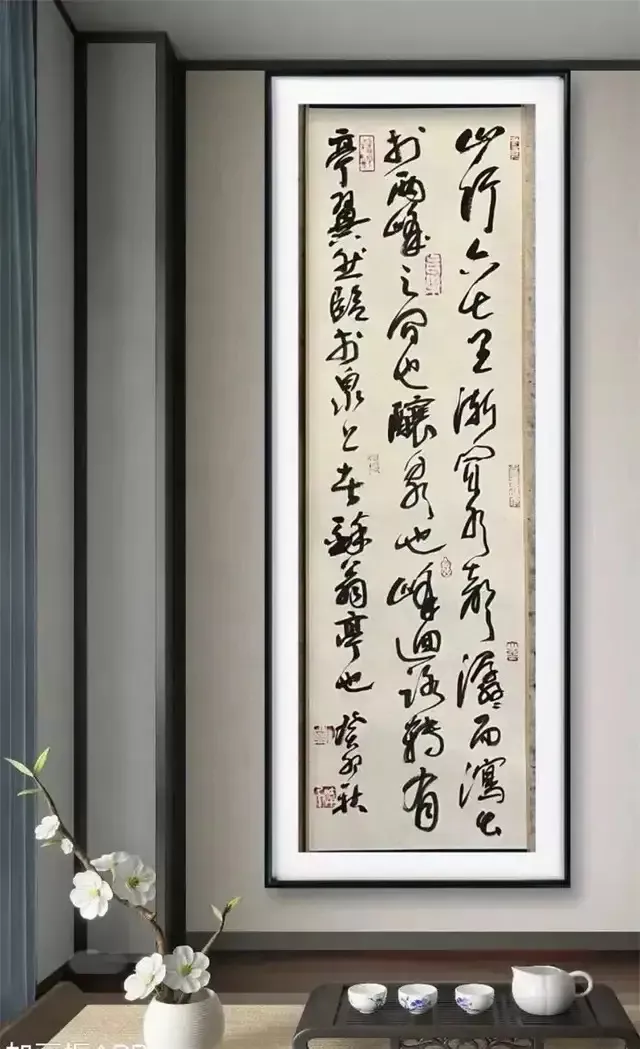 山行六七里漸聞水聲潺潺而瀉出
於兩峰之間也釀泉也峰迴路轉有
亭翼然臨於泉上者醉翁亭也 癸卯秋